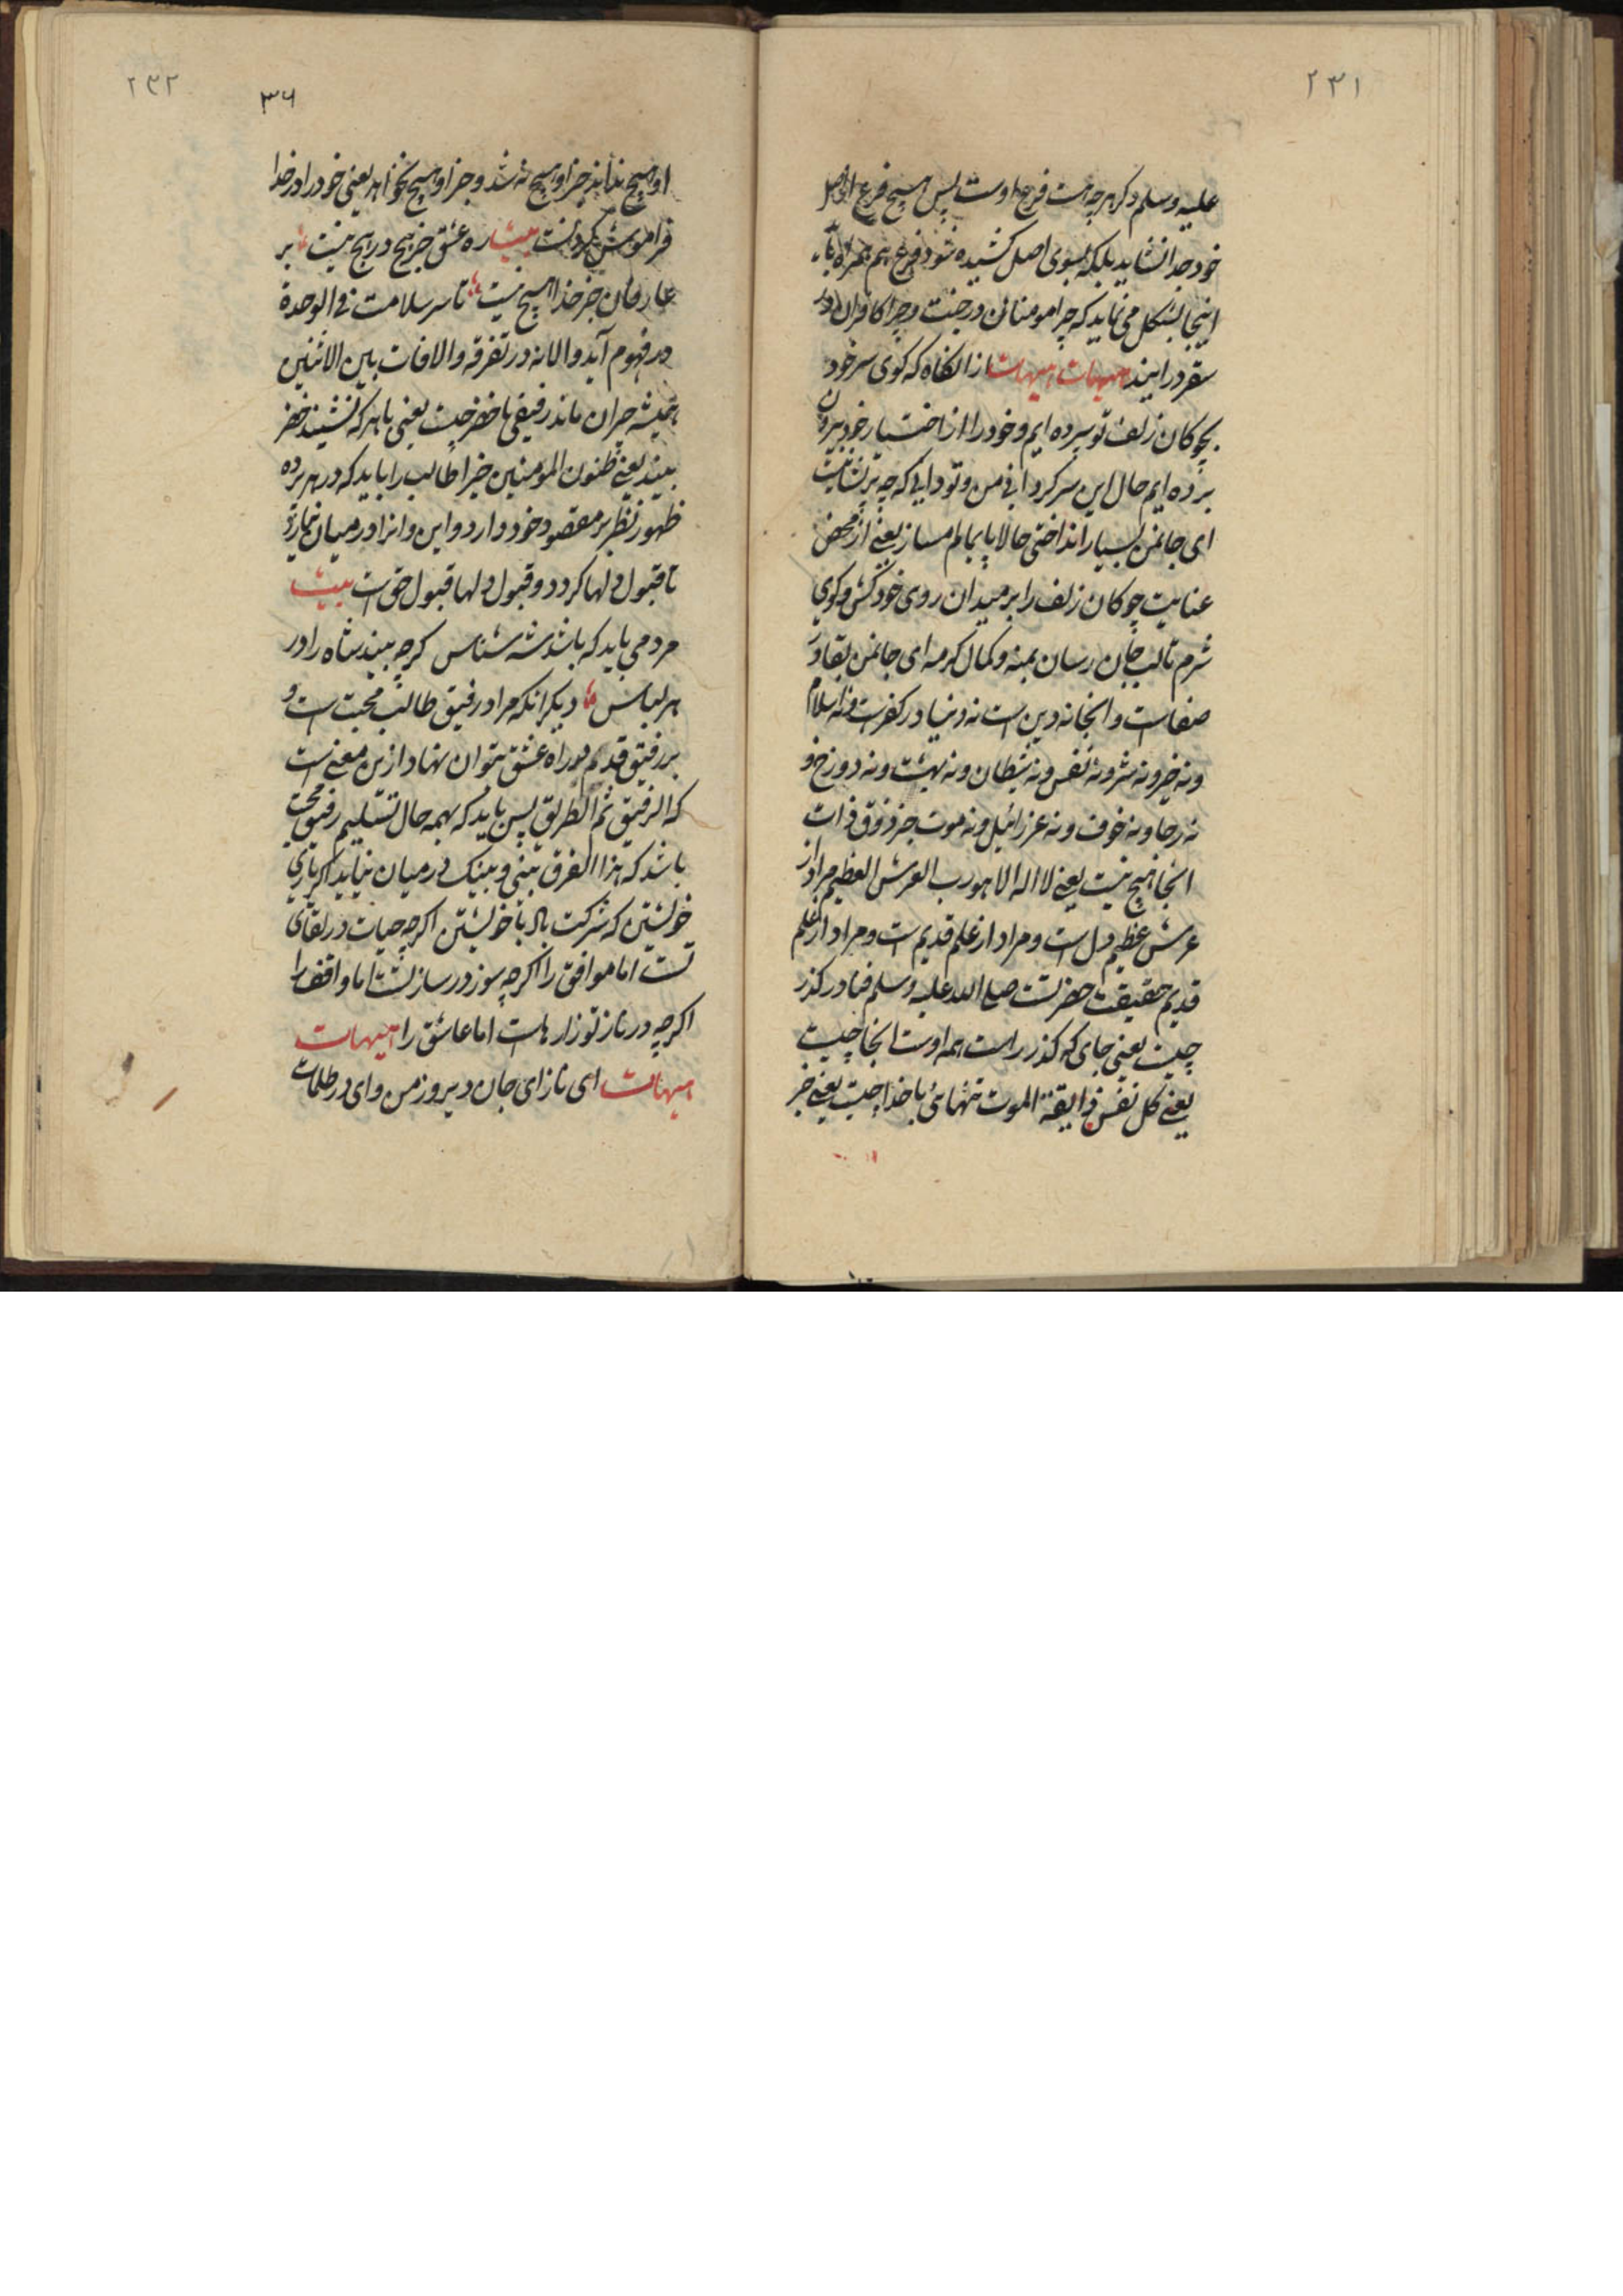 ۲۳۱
علیه وسلم و کرهرچه هست فرع اوست پس هیچ فرع از اصل
خود جدا نشاید بلکه بسوی اصل کشیده شود فرع هم همراه باید
اینجا بشکل می نماید که چرا مومنان در جنت و چرا کافران در
سقر درایند هیهات هیهات از انگاه که کوی سر خود
بچوکان زلف تو سپرده ایم و خود را از اختیار خود بیرون
برده ایم حال این سر کردانی من و تو دانی که چه پریشانیست
ای جانمن بسیار انداختی حالا پایمالم مساز یعنی از محض
عنایت چوکان زلف را بر میدان روی خود کش و کوی
شرم تالب جان رسان بمنه و کمال کرمه ای جانمن بقا در
صفاست و انجا نه دین است نه دنیا در کفرست و نه اسلام
و نه خیر و نه شر و نه نفس و نه شیطان و نه بهشت و نه دوزخ و
نه رجا و نه خوف و نه عزرائیل و نه موت جز ذوق ذات
انجا هیچ نیست یعنی لا اله الا هو رب العرش العظیم مراد از
عرش عظیم دل است و مراد از علم قدیم است و مراد از علم
قدیم حقیقت حضرتست صلی الله علیه وسلم فنا در کذر
چیست یعنی جای که کذر راست همه اوست انجا چیست
یعنی کل نفس ذایقة الموت تنهائی با خدا چیست یعنی جز
۲۳۲
۳۶
او هیچ نماند جز او هیچ نه شد و جز او هیچ نخواهد یعنی خود را در خدا
فراموش کردنست بیت ره عشق جز هیچ در هیچ نیست بر
عارفان جز خدا هیچ نیست تا سر سلامت فی الوحدة
در فهوم آید و الا نه در تفرقه والافات بین الاثنین
همیشه حیران ماند رفیقی با خضر چیست یعنی با هر که نشیند خضر
بیند یعنی ظنون المومنین خیرا طالب را باید که در هر پرده
ظهور نظر بر مقصود خود دارد و این و انرا در میان نیارد
تا قبول دلها کردد و قبول دلها قبول حق است بیت
مرد می باید که باشد شه شناس کرچه بیند شاه را در
هر لباس دیکر انکه مراد رفیق طالب محبت است و
بر رفیق قدیم در راه عشق نتوان نهاد ازین معنی است
که الرفیق ثم الطریق پس باید که بهمه حال تسلیم رفیق محبت
باشد که هذا الفرق بینی و بینک در میان نیاید اکر یاری
خویشتن که شرکت باد با خویشتن اکرچه حیات در لقای
تست اما موافق را اکرچه سوز در ساز تست اما واقف را
اکرچه در ناز تو زارهاست اما عاشق را هیهات
هیهات ای ناز ای جان دیروز من وای در ظلمات